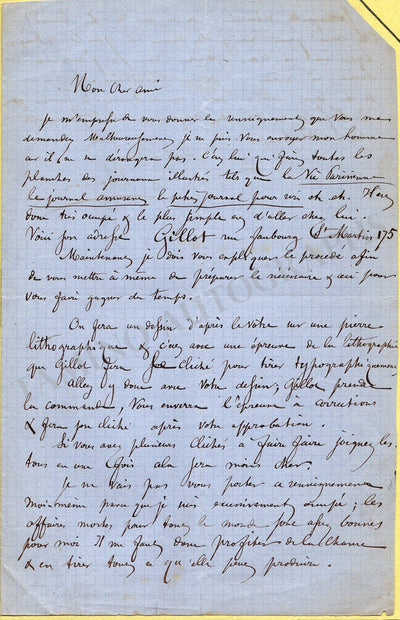 Mon cher ami
je m'empresse de vous donner le renseignement que vous me
demandez Malheureusement je ne puis vous envoyer mon homme
car il ne se dérangera pas. C'est lui qui fait toutes les
planches des journaux illustrés tels que la Vie Parisienne
le journal amusant le petit journal pour rire etc. etc. Il est
donc très occupé & le plus simple est d'aller chez lui.
Voici son adresse Gillot rue faubourg St Martin 175
Maintenant je dois vous expliquer le procédé afin
de vous mettre à même de préparer le nécessaire & aussi pour
vous faire gagner du temps.
On fera un dessin d'après le vôtre sur une pierre
lithographique & c'est avec une épreuve de la lithographie
que Gillot fera le cliché pour tirer typographiquement
Allez y donc avec votre dessin; Gillot prendra
la commande, vous enverra l'épreuve à corrections
& fera son cliché après votre approbation.
Si vous avez plusieurs clichés à faire faire joignez les
tous en une fois cela sera moins cher.
Je ne vais pas vous porter ce renseignement
moi-même parce que je suis excessivement occupé; les
affaires mortes pour tout le monde sont assez bonnes
pour moi Il me faut donc profiter de la chance
& en tirer tout ce qu'elle peut produire.